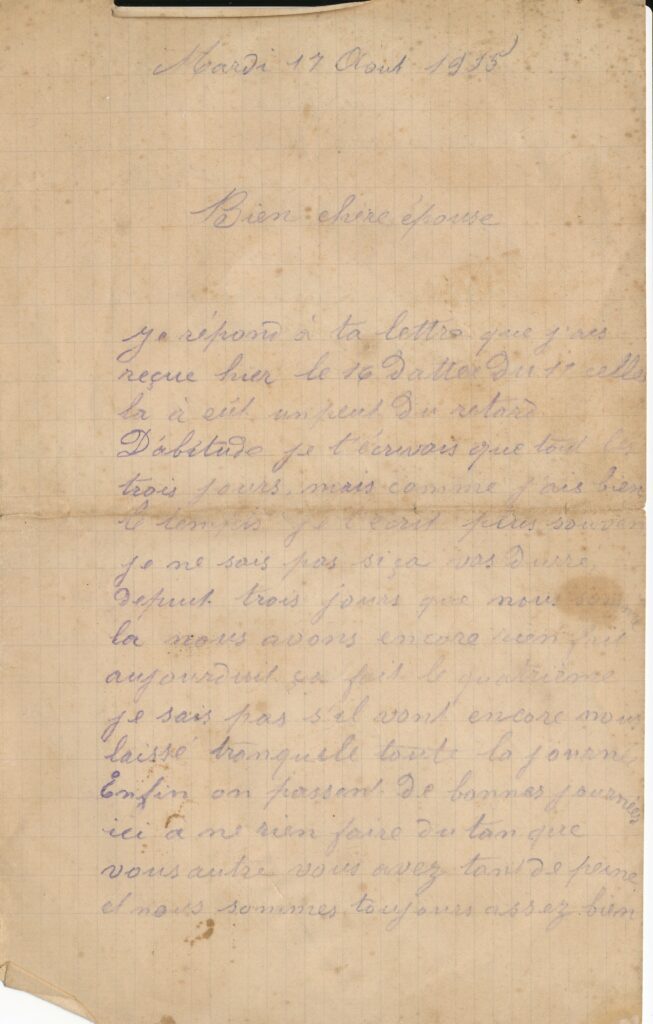 Mardi 17 Aout 1915
Bien chère épouse
je répond à ta lettre que j'ais
reçue hier le 16 dattée du 11 celle
la à eût un peut du retard
D'abitude je t'écrivais que tout les
trois jours, mais comme j'ais bien
le temps je t'écrit plus souven
je ne sais pas si ça vas durre,
depuit trois jours que nous somme
la nous avons encore rien fait
aujourduit ça fait le quatrième
je sais pas s'il vont encore nous
laissé tranquile toute la journé,
Enfin on passent de bonnes journées
ici a ne rien faire du tan que
vous autre vous avez tant de peine
et nous sommes toujours assez bien